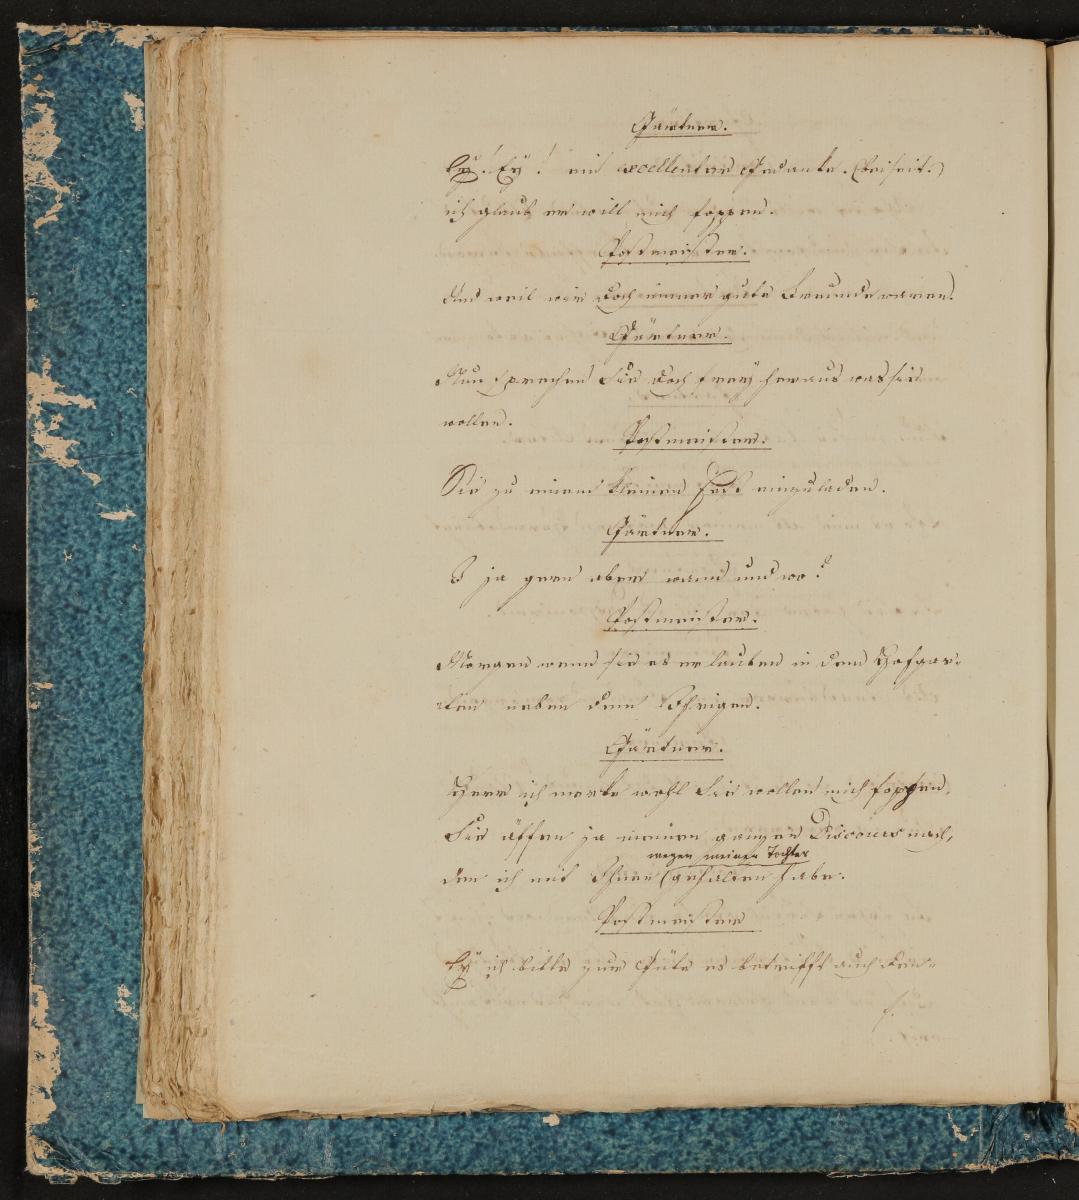 Gärtner.
Ey! Ey! ein excellenter Gedanke. (beiseit.)
ich glaub er will mich foppen.
Postmeister.
Und weil wir doch immer gute Freunde waren.
Gärtner.
Nun sprechen Sie doch freÿ heraus was sie
wollen.
Postmeister.
Sie zu einem kleinen Fest einzuladen.
Gärtner.
O ja gern aber wann und wo?
Postmeister.
Morgen wenn sie es erlauben in dem Hofgar-
ten neben dem Ihrigen.
Gärtner.
Herr ich merke wohl Sie wollen mich foppen,
Sie äffen ja meinen ganzen Discours nach,
wegen meiner Tochter
den ich mit Ihnen (gehalten habe.
Postmeister
Eÿ ich bitte zur Güte es betrifft auch den-